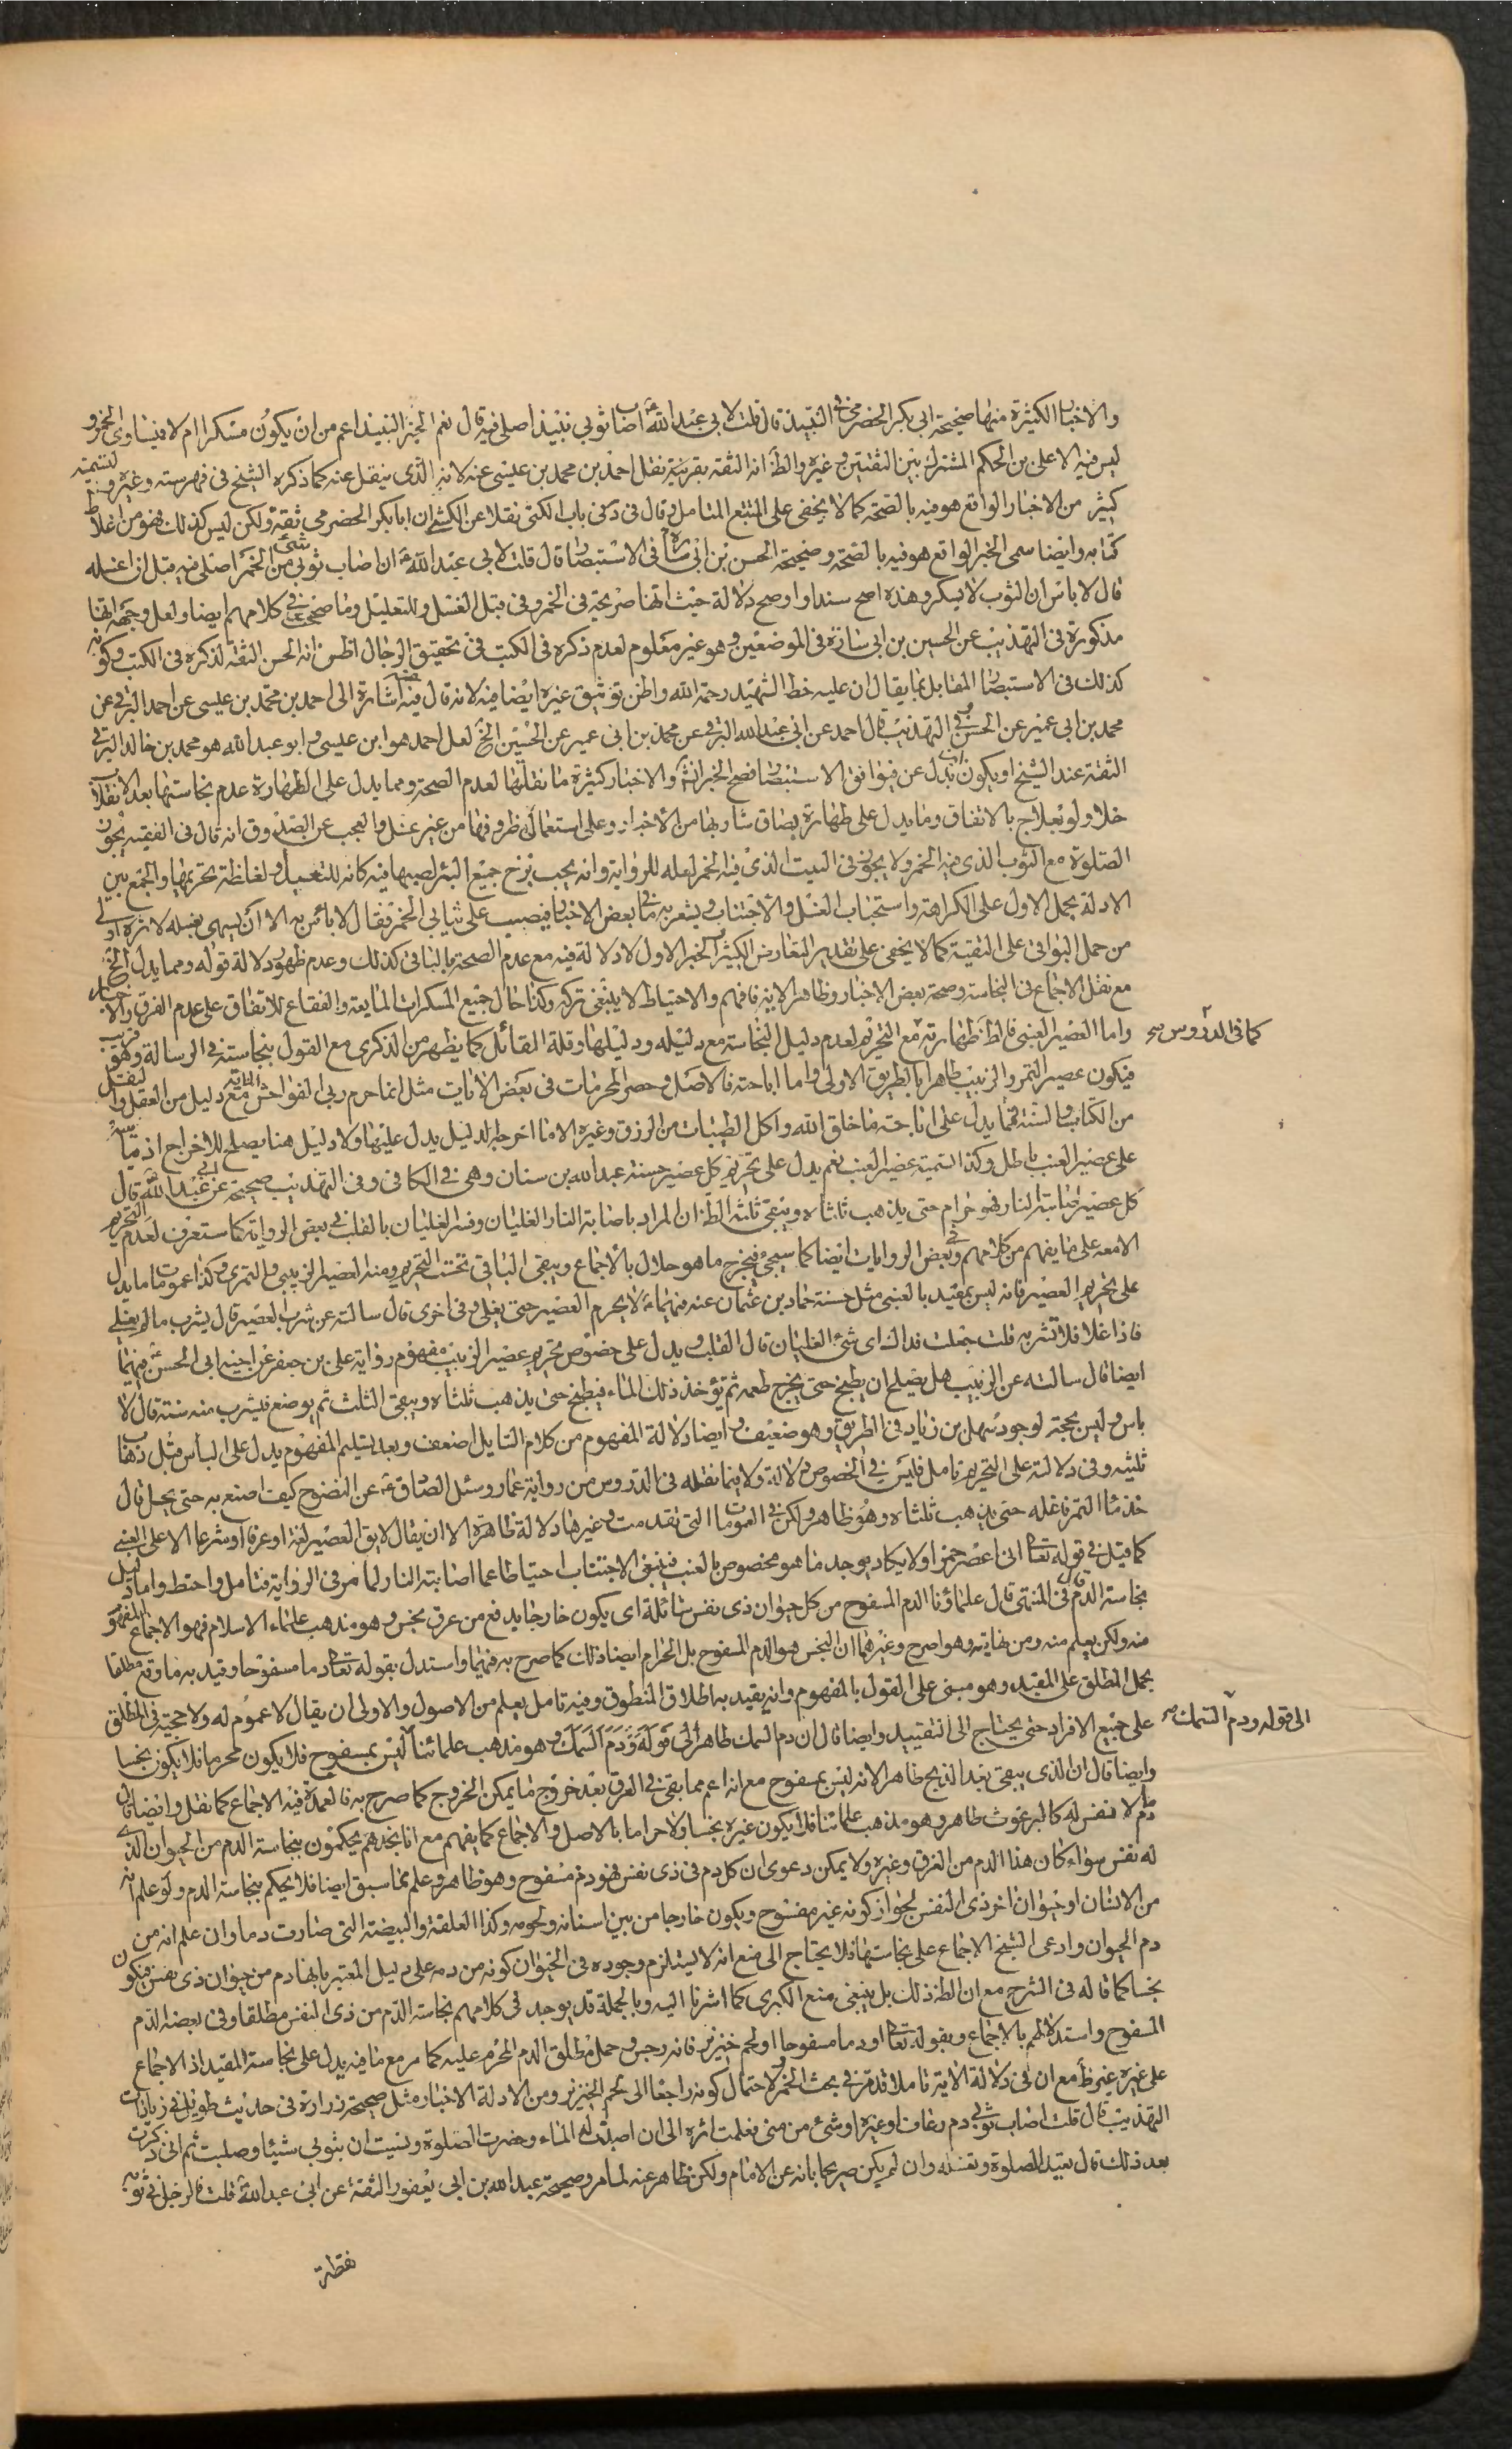 والاخبار الكثيرة منها صحيحة ابى بكر الحضرمى فى النبيذ قال قلت لابى عبد الله ع اصاب ثوبى نبيذ اصلى فيه قال نعم الخبر النبيذ اعم من ان يكون مسكرا ام لا فيساوى الخمر و
ليس فيه الا على بن الحكم المشترك بين الثقتين و غيره والظ انه الثقه بقرينة نقل احمد بن محمد بن عيسى عنه لانه الذى ينقل عنه كما ذكره الشيخ فى فهرسته و غيره و لتسمية
كثير من الاخبار الواقع هو فيه بالصحة كما لا يخفى على المتتبع المتامل و قال فى د فى باب الكنى نقلا عن الكشى ان ابا بكر الحضرمى ثقة ولكن ليس كذلك فهو من اغلاط
كتابه وايضا سمى الخبر الواقع هو فيه بالصحة و صحيحة الحسن بن ابى سارة فى الاستبصار قال قلت لابى عبد الله ع ان اصاب ثوبى شئ من الخمر اصلى فيه قبل ان اغسله
قال لا باس ان الثوب لا يسكر و هذه اصح سندا و اوضح دلالة حيث انها صريحة فى الخمر و فى قبل الغسل وللتعليل و ما صححت فى كلامهم ايضا ولعل وجهه انها
مذكورة فى التهذيب عن الحسين بن ابى سارة فى الموضعين و هو غير معلوم لعدم ذكره فى الكتب فى تحقيق الرجال اظن انه الحسن الثقة لذكره فى الكتب و كونه
كذلك فى الاستبصار المقابل بما يقال ان عليه خط الشهيد رحمة الله واظن توثيق غيره ايضا فيه لانه قال فيه اشارة الى احمد بن محمد بن عيسى عن احمد البرقى عن
محمد بن ابى عمير عن الحسن و فى التهذيب قال احمد عن ابى عبد الله البرقى عن محمد بن ابى عمير عن الحسين الخ لعل احمد هو ابن عيسى و ابو عبد الله هو محمد بن خالد البرقى
الثقة عند الشيخ او يكون ابى بدل عن فيوافق الاستبصار فصح الخبر انش والاخبار كثيرة ما نقلتها لعدم الصحة و مما يدل على الطهارة عدم نجاستها بعد الانقلاب
خلا و لو بعلاج بالاتفاق و ما يدل على طهارة بصاق شاربها من الاخبار و على استعمال ظروفها من غير غسل والعجب عن الصدوق انه قال فى الفقيه يجوز
الصلوة مع الثوب الذى فيه الخمر و لا يجوز فى البيت الذى فيه الخمر لعله للرواية و انه يجب نزح جميع البئر لصبها فيه كانه للتعبد ل و لغلظة تحريمها والجمع بين
الادلة بحمل الاول على الكراهة واستحباب الغسل والاجتناب و يشعر به ما فى بعض الاخبار فيصيب على ثيابى الخمر فقال لا باس به الا ان تشتهى تغسله لاثره اولى
من حمل البواقى على التقية كما لا يخفى على تقدير التعارض الكثير الخبر الاول لا دلالة فيه مع عدم الصحة والباقى كذلك و عدم ظهور دلالة قوله و مما يدل الخ
مع نقل الاجماع فى النجاسة و صحة بعض الاخبار و ظاهر الاية فافهم والاحتياط لا ينبغى تركه و كذا حال جميع المسكرات المايعة والفقاع للاتفاق على عدم الفرق والاخبار
واما العصير العنبى فالظ طهارته مع التحريم لعدم دليل النجاسة مع دليله و دليلها و قلة القائل كما يظهر من الذكرى مع القول بنجاسته فى الرسالة و هو قريب
كما فى الدروس ص
فيكون عصير التمر والزبيب طاهرا بالطريق الاولى و اما اباحته فالاصل و حصر المحرمات فى بعض الايات مثل انما حرم ربى الفواحش الاية مع دليل من العقل والنقل
من الكتاب والسنة مما يدل على اباحة ما خلق الله واكل الطيبات من الرزق و غيره الا ما اخرجه الدليل يدل عليها و لا دليل هنا يصلح للاخراج اذ قياسه
على عصير العنب باطل و كذا التسمية عصير العنب نعم يدل على تحريم كل عصير حسنة عبد الله بن سنان و هى فى الكافى و فى التهذيب صحيحة عن ابى عبد الله ع قال
كل عصير اصابته النار فهو حرام حتى يذهب ثلثاه و يبقى ثلثه الظ ان المراد باصابة النار الغليان و فسر الغليان بالقلب فى بعض الرواية كما ستعرف لعدم التحريم
الا معه على ما يفهم من كلامهم و فى بعض الروايات ايضا كما سيجئ فيخرج ما هو حلال بالاجماع و يبقى الباقى تحت التحريم و منه العصير الزبيبى والتمرى و كذا عموم ما يدل
على تحريم العصير فانه ليس بمقيد بالعنبى مثل حسنة حماد بن عثمان عنه فيهما لا يحرم العصير حتى يغلى و فى اخرى قال سالته عن شرب العصير قال يشرب ما لم يغلى
فاذا غلا فلا تشربه قلت جعلت فداك اى شئ الغليان قال القلب و يدل على خصوص تحريم عصير الزبيب مفهوم رواية على بن جعفر عن اخيه ابى الحسن ع فيهما
ايضا قال سالته عن الزبيب هل يصلح ان يطبخ حتى يخرج طعمه ثم يؤخذ ذلك الماء فيطبخ حتى يذهب ثلثاه و يبقى الثلث ثم يوضع فيشرب منه سنة قال لا
باس و ليس بحجة لوجود سهل بن زياد فى الطريق و هو ضعيف و ايضا دلالة المفهوم من كلام السايل اضعف و بعد تسليم المفهوم يدل على الباس قبل ذهاب
ثلثيه و فى دلالته على التحريم تامل فليس فى الخصوص دلالة ولا فيما نقله فى الدروس من رواية عمار و سئل الصادق ع عن النضوح كيف اصنع به حتى يحل قال
خذ ماء التمر فاغله حتى يذهب ثلثاه و هو ظاهر ولكن فى العمومات التى تقدمت و غيرها دلالة ظاهرة الا ان يقال لايق العصير لغة او عرفا او شرعا الا على العنبى
كما قيل فى قوله تعالى انى اعصر خمرا ولا يكاد يوجد ما هو مخصوص بالعنب فينبغى الاجتناب احتياطا عما اصابته النار لما مر فى الرواية فتامل واحتط واما دليل
نجاسة الدم قال فى المنتهى قال علماؤنا الدم المسفوح من كل حيوان ذى نفس سائلة اى يكون خارجا يدفع من عرق نجس و هو مذهب علماء الاسلام فهو الاجماع المفهوم
منه ولكن يعلم منه و من نهايته و هو اصرح و غيرهما ان النجس هو الدم المسفوح بل الحرام ايضا ذلك كما صرح به فيهما واستدل بقوله تعالى دما مسفوحا و قيد به ما وقع مطلقا
بحمل المطلق على المقيد و هو مبنى على القول بالمفهوم و انه يقيد به اطلاق المنطوق و فيه تامل يعلم من الاصول والاولى ان يقال لا عموم له ولا حجية فى المطلق
على جميع الافراد حتى يحتاج الى التقييد و ايضا قال ان دم السمك طاهر الى قوله و دم السمك و هو مذهب علمائنا ليس بمسفوح فلا يكون محرما فلا يكون نجسا
الى قوله و دم السمك ص
و ايضا قال ان الذى يبقى بعد الذبح طاهر لانه ليس بمسفوح مع انه اعم مما بقى فى العرق بعد خروج ما يمكن الخروج كما صرح به فالعمدة فيه الاجماع كما نقل و ايضا قال
دم ما لا نفس له كالبرغوث طاهر و هو مذهب علمائنا فلا يكون غيره نجسا ولا حراما بالاصل والاجماع كما يفهم مع انا نجدهم يحكمون بنجاسة الدم من الحيوان الذى
له نفس سواء كان هذا الدم من العرق و غيره ولا يمكن دعوى ان كل دم فى ذى نفس فهو دم مسفوح و هو ظاهر و علم مما سبق ايضا فلا يحكم بنجاسة الدم و لو علم انه
من الانسان او حيوان اخر ذى النفس لجواز كونه غير مفسوح و يكون خارجا من بين اسنانه و لحومه و كذا العلقة والبيضة التى صارت دما و ان علم انه من
دم الحيوان و ادعى الشيخ الاجماع على نجاستها فلا يحتاج الى منع انه لا يستلزم وجوده فى الحيوان كونه من دمه على دليل المعتبر بانها دم من حيوان ذى نفس فيكون
نجسا كما قاله فى الشرح مع ان الظ ذلك بل ينبغى منع الكبرى كما اشرنا اليه و بالجملة قد يوجد فى كلامهم نجاسة الدم من ذى النفس مطلقا و فى بعضه الدم
المسفوح واستدلالهم بالاجماع و بقوله تعالى او دما مسفوحا او لحم خنزير فانه رجس و حمل مطلق الدم المحرم عليه كما مر مع ما فيه يدل على نجاسة المقيد اذ الاجماع
على غيره غير ظ مع ان فى دلالة الاية تاملا قد مر فى بحث الخمر و لاحتمال كونه راجعا الى لحم الخنزير و من الادلة الاخبار مثل صحيحة زرارة فى حديث طويل فى زيادات
التهذيب قال قلت اصاب ثوبى دم رعاف او غيره او شئ من منى فعلمت اثره الى ان اصيب له الماء و حضرت الصلوة و نسيت ان بثوبى شيئا و صليت ثم انى ذكرت
بعد ذلك قال تعيد الصلوة و تغسله و ان لم يكن صريحا بانه عن الامام ولكن ظاهر عنه لما مر و صحيحة عبد الله بن ابى يعفور الثقة عن ابى عبد الله ع قلت فالرجل فى ثوبه
نقطة